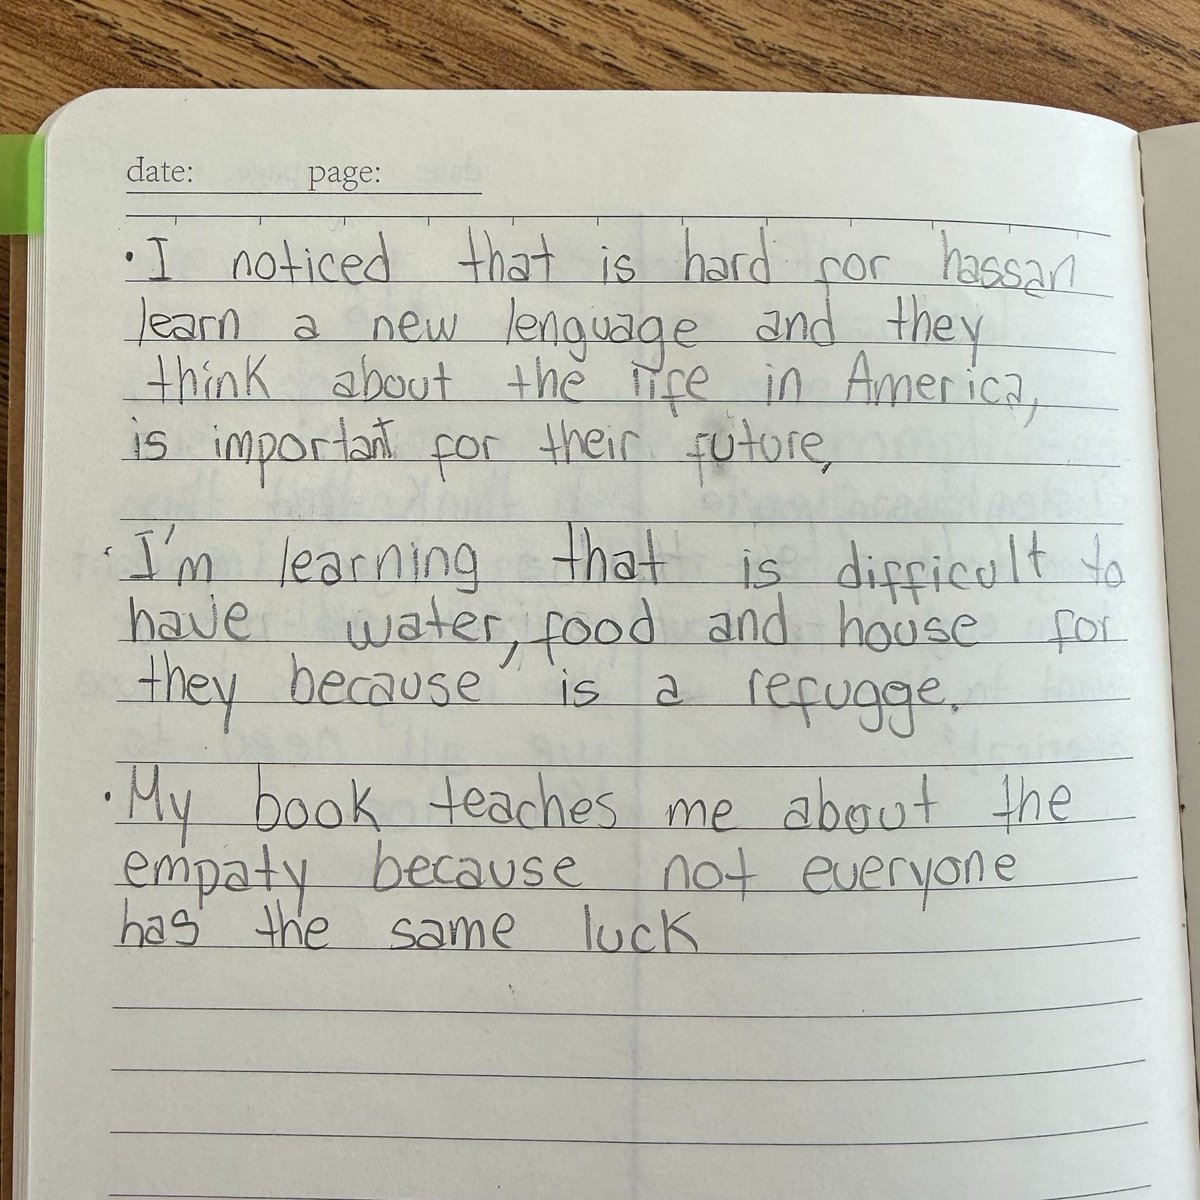 date: page:
• I noticed that is hard for hassan
learn a new lenguage and they
think about the life in America,
is important for their future,
• I'm learning that is difficult to
have water, food and house for
they because is a refugge.
• My book teaches me about the
empaty because not everyone
has the same luck